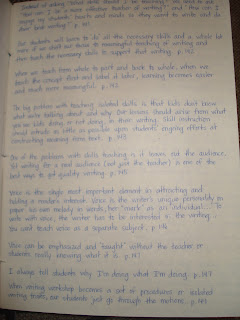 Instead of asking, "What skills should I be teaching?" we need to ask
"How can I be a more effective teacher of writing?" and "How can I
engage my students' hearts and minds so they want to write and do
their best writing." p. 141
Our students will learn to do all the necessary skills and a whole lot
more if we shift our focus to meaningful teaching of writing and
then teach the necessary skills to support that writing. p. 142
When we teach from whole to part and back to whole, when we
teach the concept first and label it later, learning becomes easier
and much more meaningful. p. 143
The big problem with teaching isolated skills is that kids don't know
what we're talking about and why. Our lessons should arise from what
we see kids doing, or not doing, in their writing. Skill instruction
should intrude as little as possible upon students' ongoing efforts at
constructing meaning from text. p. 145
One of the problems with skills teaching is it leaves out the audience,
and writing for a real audience (not just the teacher) is one of the
best ways to get quality writing. p. 145
Voice is the single most important element in attracting and
holding a reader's interest. Voice is the writer's unique personality on
paper, his own melody in words, her "mark" as an individual. To
write with voice, the writer has to be interested in the writing...
You can't teach voice as a separate subject. p.
Voice can be emphasized and "taught" without the teacher or
students really knowing what it is. p. 147
I always tell students why I'm doing what I'm doing. p. 147
When writing workshop becomes a set of procedures or isolated
writing traits, our students just go through the motions. p. 149